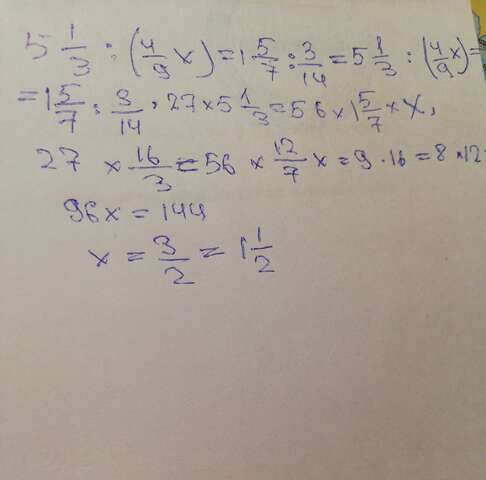 5 1/3 : (4/9 x) = 1 5/7 : 3/14 = 5 1/3 : (4/9 x) =
= 1 5/7 : 3/14, 27 × 5 1/3 = 56 × 1 5/7 × x,
27 × 16/3 = 56 × 12/7 x = 9 · 16 = 8 × 12
96x = 144
x = 3/2 = 1 1/2